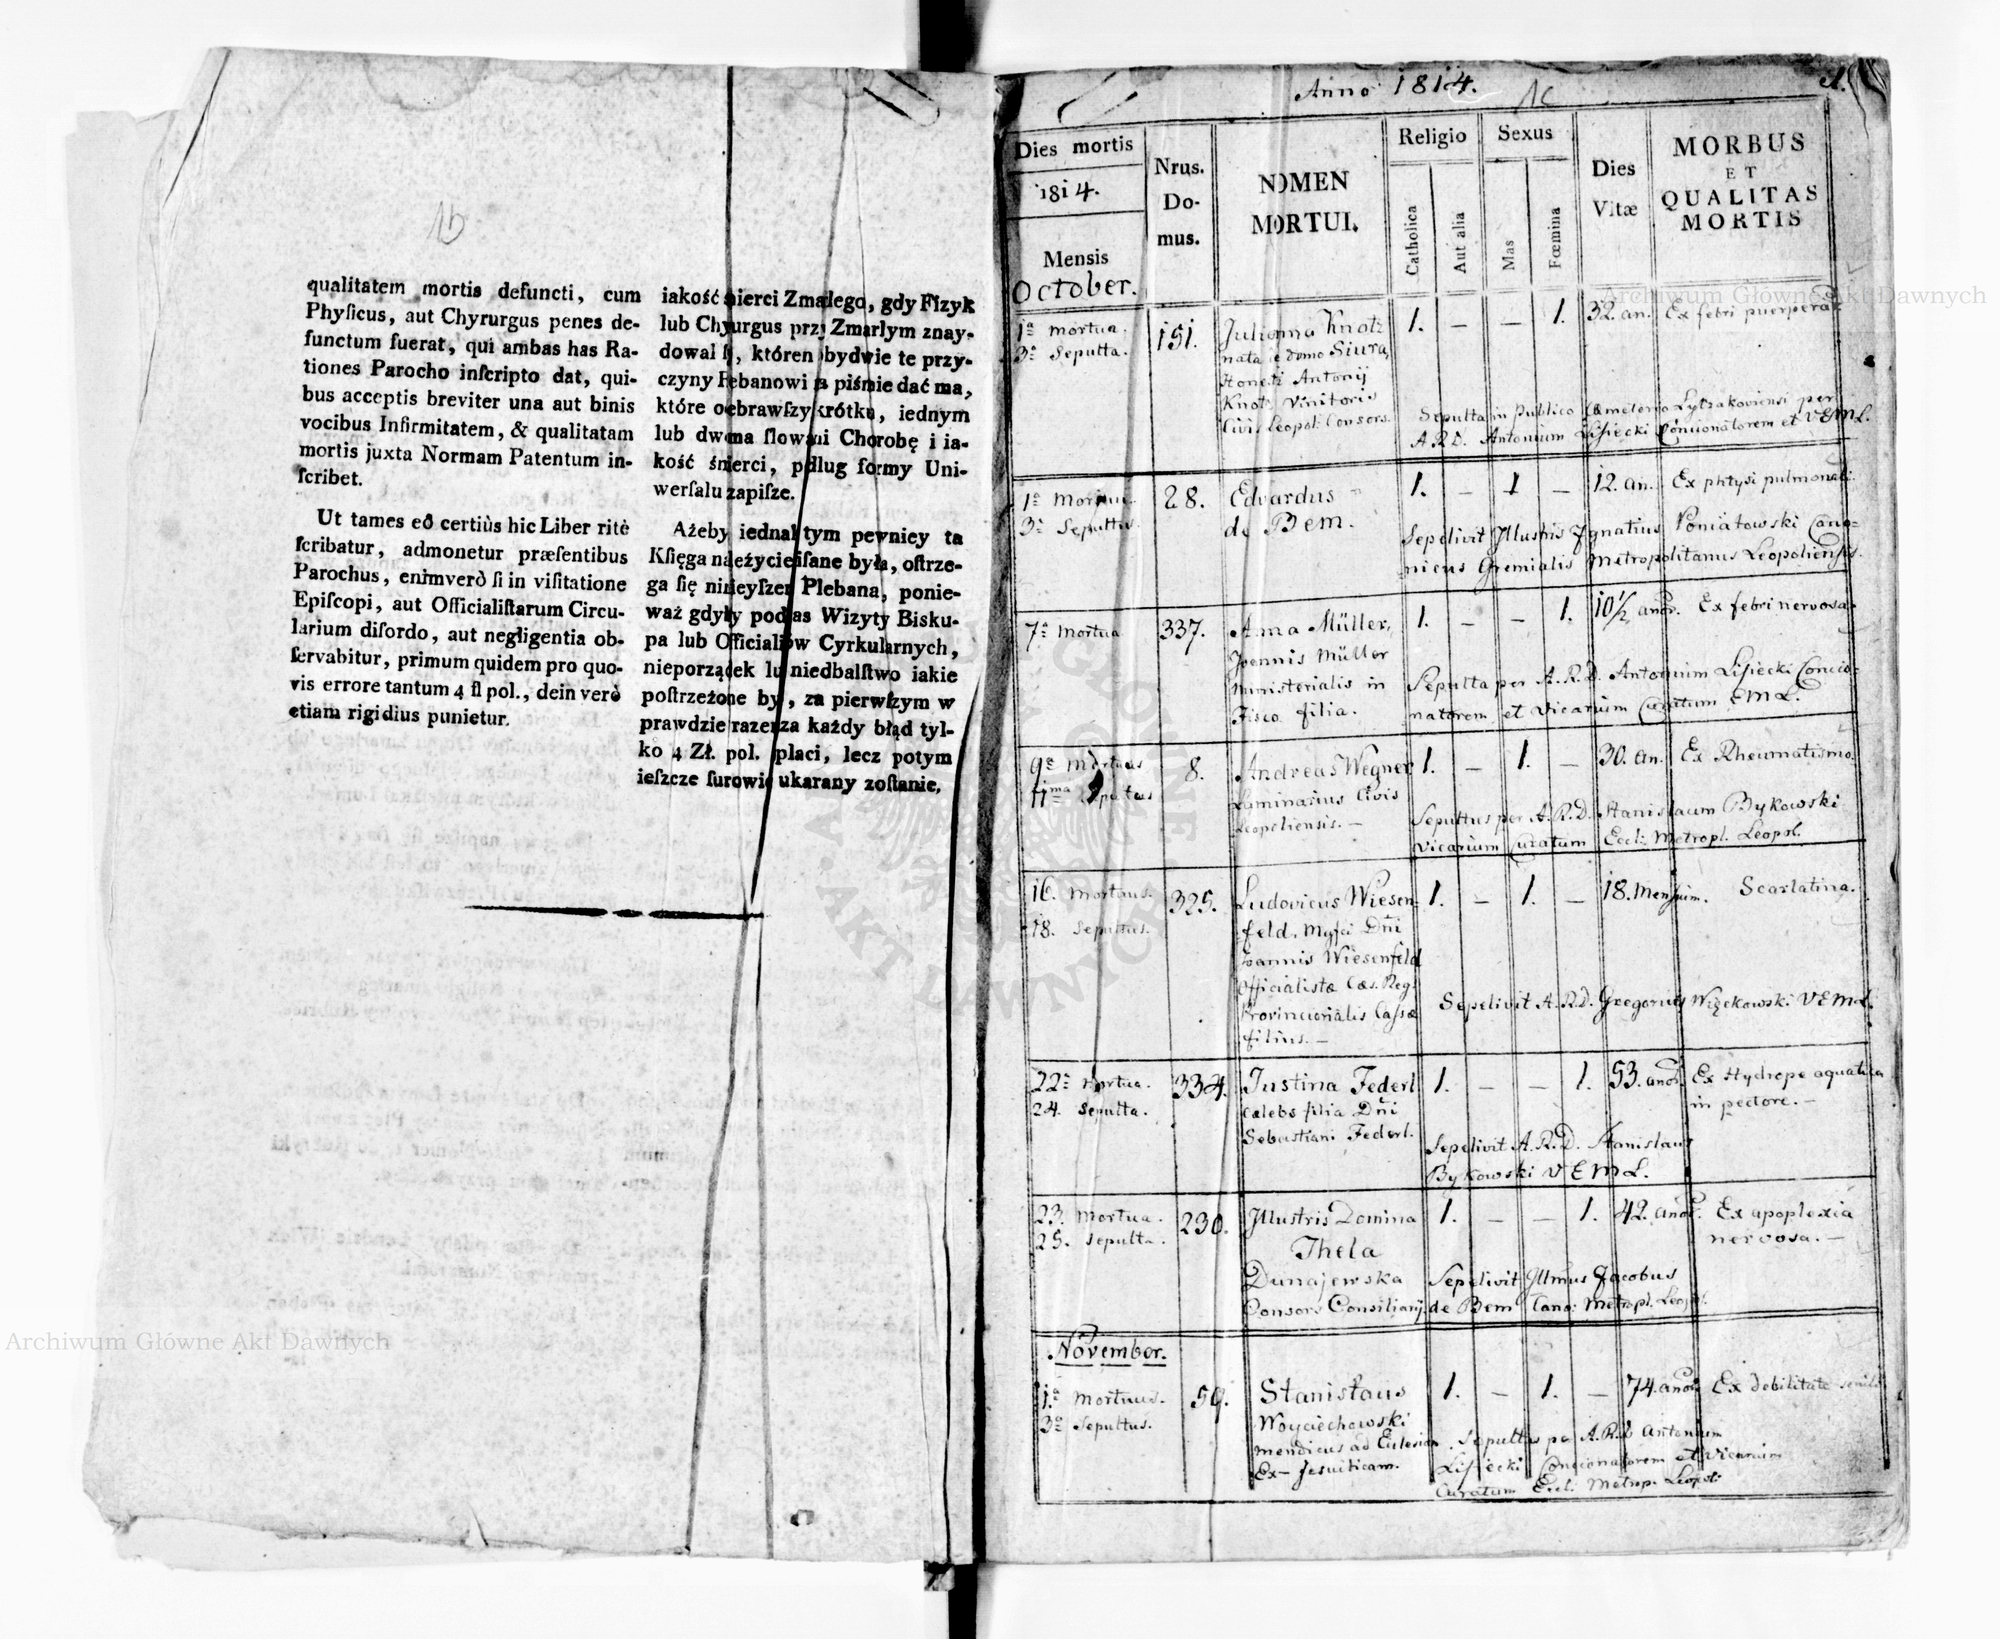 1b
qualitatem mortis defuncti, cum
Phyſicus, aut Chyrurgus penes de-
functum fuerat, qui ambas has Ra-
tiones Parocho inſcripto dat, qui-
bus acceptis breviter una aut binis
vocibus Infirmitatem, & qualitatam
mortis juxta Normam Patentum in-
ſcribet.
Ut tames eò certiùs hic Liber ritè
ſcribatur, admonetur præſentibus
Parochus, enimverò ſi in viſitatione
Epiſcopi, aut Officialiſtarum Circu-
larium diſordo, aut negligentia ob-
ſervabitur, primum quidem pro quo-
vis errore tantum 4 fl pol., dein verò
etiam rigidius punietur.
iakość śmierci Zmałego, gdy Fizyk
lub Chyurgus przy Zmarłym znay-
dował ſię, któren obydwie te przy-
czyny Plebanowi na piśmie dać ma,
które odebrawſzy krótko, iednym
lub dwoma ſłowami Chorobę i ia-
kość śmierci, podlug formy Uni-
werſalu zapiſze.
Ażeby iednak tym pewniey ta
Kſięga należycie piſane była, oſtrze-
ga ſię ninieyſzem Plebana, ponie-
waż gdyby podczas Wizyty Bisku-
pa lub Officialiów Cyrkularnych,
nieporządek lub niedbalſtwo iakie
poſtrzeżone by, za pierwſzym w
prawdzie razem za każdy błąd tyl-
ko 4 Zł. pol. placi, lecz potym
ieſzcze ſurowie ukarany zoſtanie.
Anno 1814.
1c
1.
Dies mortis
1814.
Mensis
October.
Nrus.
Do-
mus.
NOMEN
MORTUI.
Religio
Catholica
Aut alia
Sexus
Mas
Fœmina
Dies
Vitæ
MORBUS
ET
QUALITAS
MORTIS
1a mortua.
3a Sepulta.
151.
Julianna Knotz
nata e domo Siura,
Honesti Antonij
Knotz Vinitoris
Civis Leopol: Consors.
1. – – 1.
32. an.
Ex febri puerperali
Sepulta in publico Cæmeterio Lytzakoviensi per
A.R.D. Antonium Lisiecki Concionatorem et V.E.M.L.
1a Mortuus
3a Sepultus.
28.
Edvardus
de Bem.
1. – 1 –
12. an.
Ex phtysi pulmonali.
Sepelivit Illustris Ignatius Poniatowski Cano-
nicus Gremialis Metropolitanus Leopoliensis.
7a Mortua
337.
Anna Müller,
Joannis Müller
Ministerialis in
Fisco filia.
1. – – 1.
10 1/2 anor.
Ex febri nervosa.
Sepulta per A.R.D. Antonium Lisiecki Concio-
natorem et Vicarium Curatum E M L.
9a Mortuus
11ma Sepultus
8.
Andreas Wegner
Luminarius Civis
Leopoliensis. –
1. – 1. –
30. an.
Ex Rheumatismo
Sepultus per A.R.D. Stanislaum Bykowski
Vicarium Curatum Eccli: Metropl. Leopol.
16. Mortuus.
18. Sepultus.
325.
Ludovicus Wiesen-
feld. Mgfci Dñi
Joannis Wiesenfeld
Officialistæ Cæs. Reg.
Provincionalis Cassæ
filius. –
1. – 1. –
18. Mensium.
Scarlatina.
Sepelivit A.R.D. Gregorius Więckowski V E M L.
22a Mortua.
24. sepulta.
334.
Justina Federl
cælebs filia Dñi
Sebastiani Federl.
1. – – 1.
53. anor.
Ex Hydrope aquatica
in pectore. –
Sepelivit A.R.D. Stanislaus
Bykowski V E M L.
23. Mortua.
25. sepulta.
230.
Illustris Domina
Thela
Dunajewska
Consors Consiliarij
1. – – 1.
42. anor.
Ex apoplexia
nervosa. –
Sepelivit Illmus Jacobus
de Bem Cano: Metropl. Leopol.
November.
1.a Mortuus.
3a Sepultus.
59.
Stanisłaus
Woyciechowski
mendicus ad Eclesiam
Ex-Jesuiticam.
1. – 1. –
74. anor.
Ex debilitate senili
Sepultus per A.R.D Antonium
Lisiecki Concionatorem et Vicarium
Curatum Eccl: Metrop. Leopoli
Archiwum Główne Akt Dawnych
Archiwum Główne Akt Dawnych